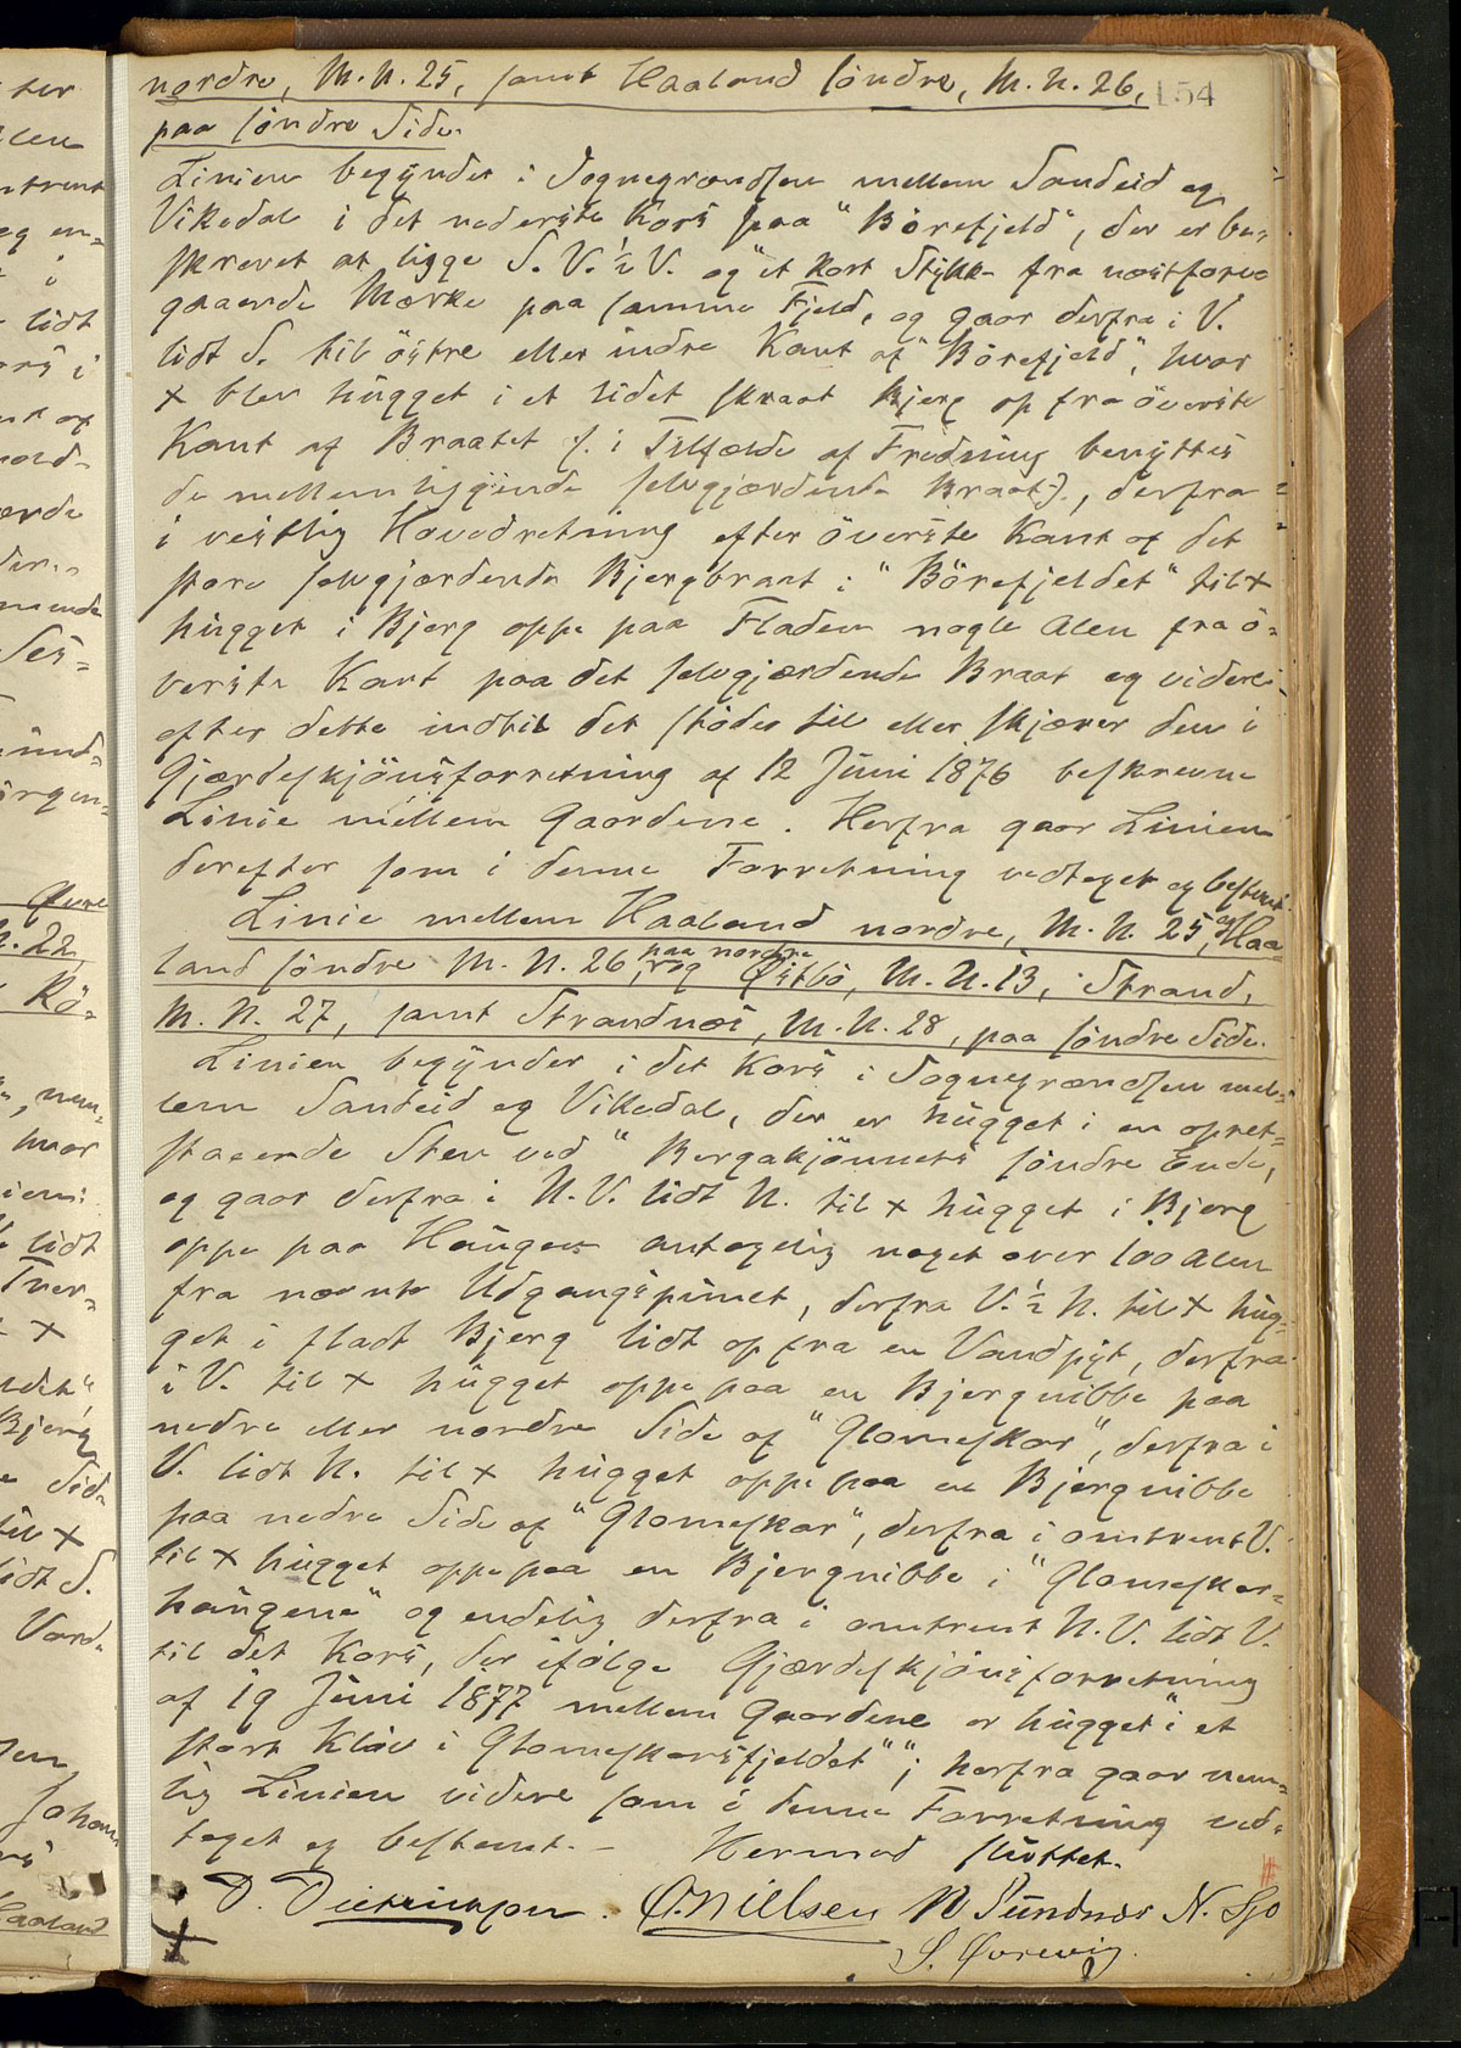 nordre, M. N. 25, samt Haaland söndre, M. N. 26, 154
paa söndre Side.
Linien begÿnder i Sognegrændsen mellem Sandeid og
Vikedal i det nederste Kors paa "Börefjeld", der er be-
skrevet at ligge S. V. ½ V. og "et kort Stÿkke fra næstfore-
gaaende Mærke paa samme Fjeld, og gaar derfra i V.
lidt S. til östre eller indre Kant af "Börefjeld", hvor
x blev hugget i et lidet skraat Bjerg op fra överste
Kant af Braatet (: i Tilfælde af Fredning benÿttes
de mellemliggende selvgjærdende Braat :), derfra
i vestlig Hovedretning efter överste Kant af det
store selvgjærdende Bjergbraat i "Börefjeldet" til x
hugget i Bjerg oppe paa Fladen nogle Alen fra ö-
verste Kant paa det selvgjærdende Braat og videre
efter dette indtil det stöder til eller skjærer den i
Gjærdeskjönsforretning af 12 Juni 1876 beskrevne
Linie mellem Gaardene. Herfra gaar Linien
derefter som i denne Forretning vedtaget og bestemt.
Linie mellem Haaland nordre, M. N. 25, og Haa-
land söndre M. N. 26, paa nordre og Östbö, M. N. 13, Strand,
M. N. 27, samt Strandnæs, M. N. 28, paa söndre Side.
Linien begÿnder i det Kors i Sognegrændsen mel-
lem Sandeid og Vikedal, der er hugget i en opret-
staaende Sten ved "Bergakjönnets söndre Ende,
og gaar derfra i N. V. lidt N. til x hugget i Bjerg
oppe paa Haugen antagelig noget over 100 Alen
fra nævnte Udgangspunct, derfra V. ½ N. til x hug-
get i fladt Bjerg lidt op fra en Vandpÿt, derfra
i V. til x hugget oppe paa en Bjergnibbe paa
nedre eller nordre Side af "Glomeskar", derfra i
V. lidt N. til x hugget oppe paa en Bjergnibbe
paa nedre Side af "Glomeskar", derfra i omtrent V.
til x hugget oppe paa en Bjergnibbe i "Glomeskar-
haugene" og endelig derfra i omtrent N. V. lidt V.
til det Kors, der ifölge Gjærdeskjönsforretning
af 19 Juni 1877 mellem Gaardene er hugget "i et
stort Klöv i Glomeskarsfjeldet""; herfra gaar nem-
lig Linien videre som i denne Forretning ved-
taget og bestemt. – Hermed sluttet.
D. Dietrichson. O. Nielsen N Sundnæs N. Sjo
S. Qvrevig.